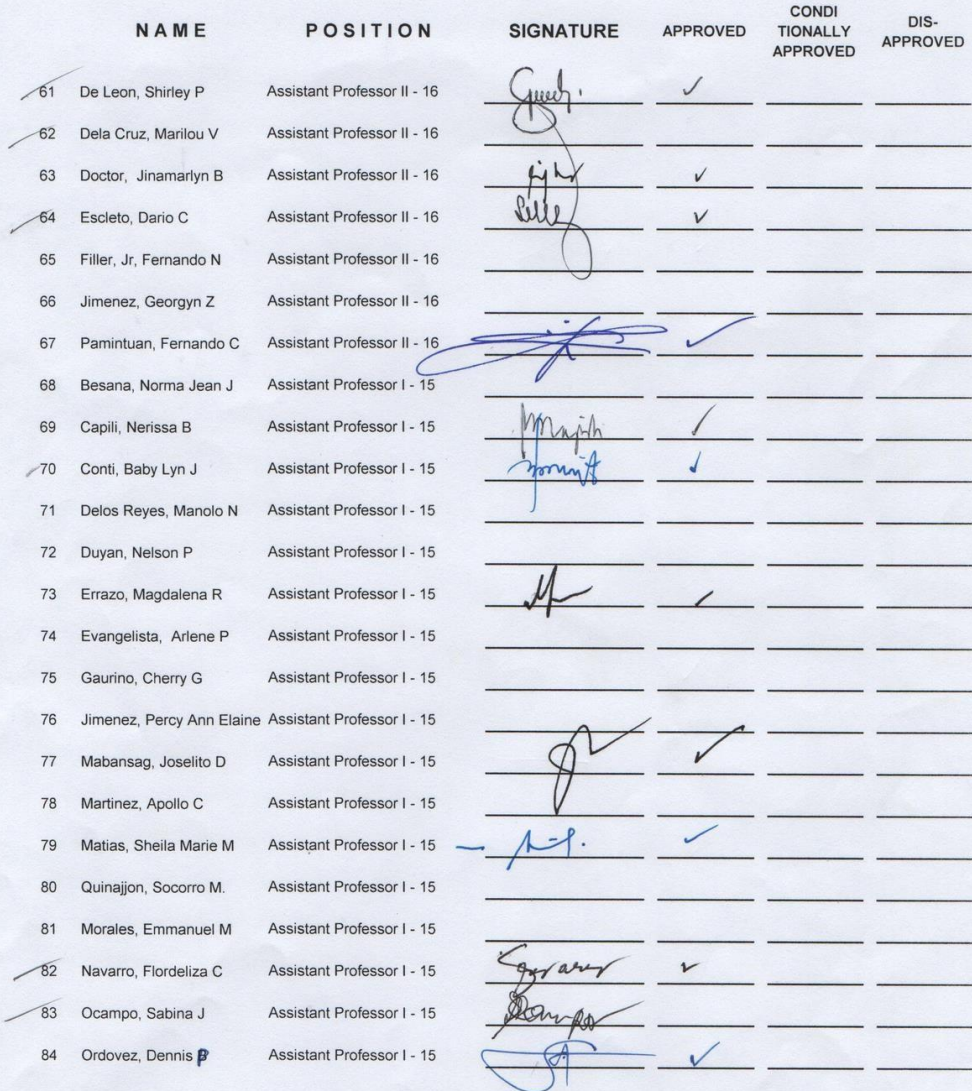 NAME POSITION SIGNATURE APPROVED CONDI TIONALLY APPROVED DIS- APPROVED
61 De Leon, Shirley P Assistant Professor II - 16 ✓
62 Dela Cruz, Marilou V Assistant Professor II - 16
63 Doctor, Jinamarlyn B Assistant Professor II - 16 ✓
64 Escleto, Dario C Assistant Professor II - 16 ✓
65 Filler, Jr, Fernando N Assistant Professor II - 16
66 Jimenez, Georgyn Z Assistant Professor II - 16
67 Pamintuan, Fernando C Assistant Professor II - 16 ✓
68 Besana, Norma Jean J Assistant Professor I - 15
69 Capili, Nerissa B Assistant Professor I - 15 ✓
70 Conti, Baby Lyn J Assistant Professor I - 15 ✓
71 Delos Reyes, Manolo N Assistant Professor I - 15
72 Duyan, Nelson P Assistant Professor I - 15
73 Errazo, Magdalena R Assistant Professor I - 15 ✓
74 Evangelista, Arlene P Assistant Professor I - 15
75 Gaurino, Cherry G Assistant Professor I - 15
76 Jimenez, Percy Ann Elaine Assistant Professor I - 15
77 Mabansag, Joselito D Assistant Professor I - 15 ✓
78 Martinez, Apollo C Assistant Professor I - 15
79 Matias, Sheila Marie M Assistant Professor I - 15 ✓
80 Quinajjon, Socorro M. Assistant Professor I - 15
81 Morales, Emmanuel M Assistant Professor I - 15
82 Navarro, Flordeliza C Assistant Professor I - 15 ✓
83 Ocampo, Sabina J Assistant Professor I - 15
84 Ordovez, Dennis Assistant Professor I - 15 ✓